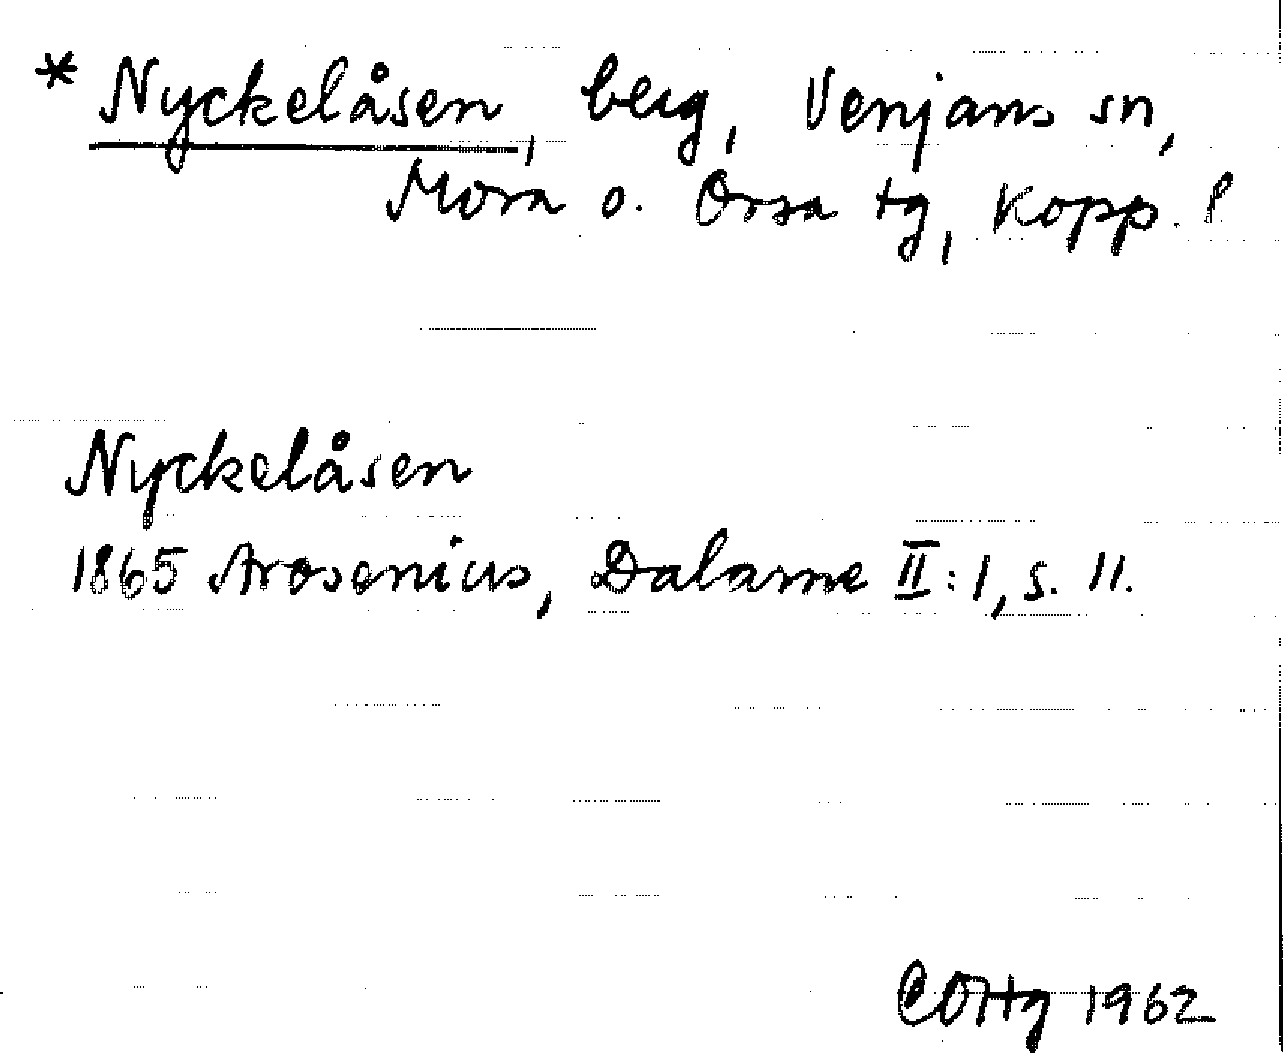 * Nyckelåsen, berg, Venjans sn,
Mora o. Orsa tg, Kopp. l
Nyckelåsen
1865 Arosenius, Dalarne II:1, s. 11.
COHg 1962